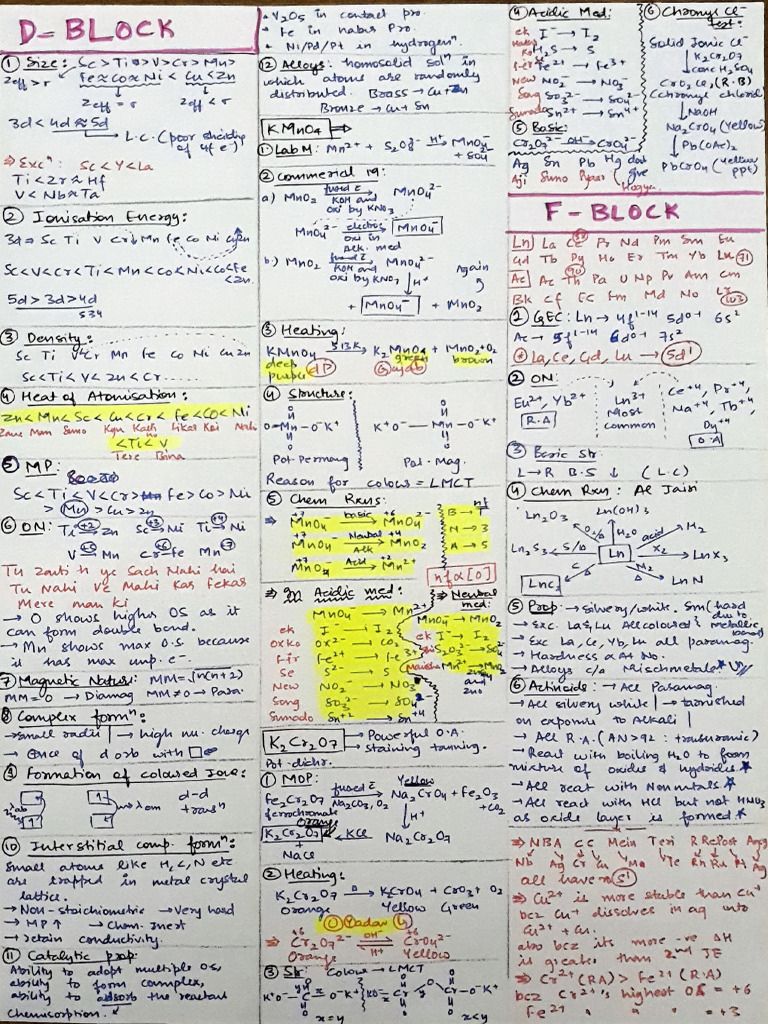 D= BLOCK
① Size: Sc > Ti > V > Cr > Mn >
Zeff > r Fe ≈ Co ≈ Ni < Cu < Zn
Zeff = σ Zeff < σ
3d < 4d ≈ 5d
L.C. (poor shielding of 4f e⁻)
⇒ Excⁿ: Sc < Y < La
Ti < Zr ≈ Hf
V < Nb ≈ Ta
② Ionisation Energy:
3d ⇒ Sc Ti V Cr Mn Fe Co Ni Cu Zn
5d > 3d > 4d
③ Density:
Sc Ti V Cr Mn Fe Co Ni Cu Zn
Sc < Ti < V < Zn < Cr
④ Heat of Atomisation:
Zn < Mn < Sc < Cu < Cr < Fe < Co < Ni
< Ti < V
Tere Bina
⑤ MP:
Sc < Ti < V < Cr > Fe > Co > Ni
> Mn > Cu > Zn
⑥ ON: Ti +2 Zn Sc +3 Ni Ti +4 Ni
V +5 Mn Cr +6 Fe Mn +7
Tu Zauti h ye Sach Nahi hai
Tu Nahi Ve Mahi Kas fekas
Mere man ki
→ O shows higher OS as it
can form double bond.
→ Mn shows max O.S because
it has max unp. e⁻.
⑦ Magnetic Nature: MM = √n(n+2)
MM = 0 → Diamag MM ≠ 0 → Para.
⑧ Complex formⁿ:
→ small radii | → high nu. charge
→ Pence of d orb with
⑨ Formation of coloured Ions:
d-d
transⁿ
⑩ Interstitial comp. formⁿ:
Small atoms like H, C, N etc
are trapped in metal crystal
lattice.
→ Non-stoichiometric → Very hard
→ MP ↑ → Chem. Inert
→ retain conductivity.
⑪ Catalytic prop:
Ability to adopt multiple OS,
ability to form complex,
ability to adsorb the reactant
Chemisorption.
• V₂O₅ in contact pro.
• Fe in habers Pro.
• Ni/Pd/Pt in hydrogenⁿ
⑫ Alloys: homosolid solⁿ in
which atoms are randomly
distributed. Brass → Cu + Zn
Bronze → Cu + Sn
KMnO₄ ⇒
① Lab M: Mn²⁺ + S₂O₈²⁻ H⁺→ MnO₄⁻
+ SO₄
② Commercial M:
a) MnO₂ fused c̄ KOH and oxi by KNO₃ → MnO₄²⁻
MnO₄²⁻ electro oxi in Alk. med → MnO₄⁻
b.) MnO₂ fused c̄ KOH and oxi by KNO₃ → MnO₄²⁻ Again
↓ H⁺
+ MnO₄⁻ + MnO₂
③ Heating:
KMnO₄ 513K→ K₂MnO₄ + MnO₂ + O₂
deep purple green brown
④ Structure:
Pot. Permang Pot. Mag.
Reason for colour = LMCT
⑤ Chem Rxns: nf
⇒ MnO₄⁻ basic → MnO₄²⁻ B → 1
MnO₄⁻ Neutral Alk → MnO₂ N → 3
MnO₄⁻ Acid → Mn²⁺ A → 5
nf α [O]
⇒ In Acidic med: ⇒ Neutral med:
MnO₄⁻ → Mn²⁺ MnO₄⁻ → MnO₂
ek I⁻ → I₂ ek I⁻ → I
Oxko Ox²⁻ → CO₂
Fir Fe²⁺ → Fe³⁺
Se S²⁻ → S
New NO₂⁻ → NO₃⁻
Song SO₃²⁻ → SO₄²⁻
Sunado Sn⁺² → Sn⁺⁴
K₂Cr₂O₇ → Powerful O.A.
→ staining tanning.
Pot. dichr.
① MOP:
Fe₂Cr₂O₇ fused c̄ Na₂CO₃, O₂ → Na₂CrO₄ + Fe₂O₃ + CO₂
Yellow
ferrochromate ↓ H⁺
Orange
K₂Cr₂O₇ ← KCl Na₂Cr₂O₇
+
NaCl
② Heating:
K₂Cr₂O₇ Δ→ K₂CrO₄ + CrO₃ + O₂
Orange Yellow Green
O Yadav G
⇒ Cr₂O₇²⁻ OH⁻ ⇌ H⁺ CrO₄²⁻
Orange Yellow
③ Str: Colour → LMCT
x = y x < y
④ Acidic Med:
ek I⁻ → I₂
H₂S → S
fir Fe²⁺ → Fe³⁺
New NO₂⁻ → NO₃⁻
Song SO₃²⁻ → SO₄²⁻
Sunado Sn²⁺ → Sn⁴⁺
⑤ Basic:
Cr₂O₇²⁻ OH⁻→ CrO₄²⁻
Ag Sn Pb Hg
Aji Suno Pyasi
Hogya
⑥ Chromyl Cl⁻ test:
Solid Ionic Cl⁻
↓ K₂Cr₂O₇
conc H₂SO₄
CrO₂Cl₂ (R.B)
(chromyl chloride)
↓ NaOH
Na₂CrO₄ (Yellow)
↓ Pb(OAc)₂
PbCrO₄ (yellow ppt)
F- BLOCK
Ln La Ce 58 Pr Nd Pm Sm Eu
Gd Tb Dy Ho Er Tm Yb Lu 71
Ac Ac Th 90 Pa U Np Pu Am Cm
Bk Cf Es Fm Md No Lr 103
① GEC: Ln → 4f¹⁻¹⁴ 5d⁰⁻¹ 6s²
Ac → 5f¹⁻¹⁴ 6d⁰⁻¹ 7s²
* La, Ce, Gd, Lu → 5d¹
② ON:
Eu²⁺, Yb²⁺ Ln³⁺ Ce⁺⁴, Pr⁺⁴,
R.A Most common Nd⁺⁴, Tb⁺⁴
Dy⁺⁴
O.A
③ Basic Str:
L → R B.S ↓ (L.C)
④ Chem Rxn: Al Jaisi
Ln₂O₃ Ln(OH)₃
O₂/Δ H₂O acid H₂
Ln₂S₃ S/Δ Ln X₂ LnX₃
LnC₂ C Δ N₂ Δ LnN
⑤ Prop: → silvery/white. Sm (hard
→ Exc. La & Lu All coloured
→ Exc La, Ce, Yb, Lu all paramag.
→ Hardness α At No.
→ Alloys c/a Mischmetals
⑥ Actinoids: → All Paramag.
→ All silvery white | → tarnished
on exposure to Alkali |
→ All R.A. (AN > 92 : transuranic)
→ React with boiling H₂O to form
mixture of oxides & hydrides
→ All react with Nonmetals
→ All react with HCl but not HNO₃
as oxide layer is formed
⇒ NBA CC Mein Teri
Nb Ag Cr Cu Mo Te Rh Ru Pt Ag
all have → S¹
⇒ Cu²⁺ is more stable than Cu⁺
bcz Cu⁺ dissolves in aq into
Cu²⁺ + Cu.
also bcz its more -ve ΔH
is greater than 2nd IE
⇒ Cr²⁺ (RA) > Fe²⁺ (R.A)
bcz Cr²⁺'s highest OS = +6
Fe²⁺ " " = +3